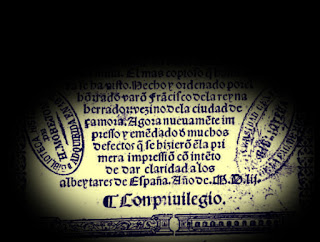 El mas copioso q
se ha visto. Hecho y ordenado por el
hōrrado varō Frācisco de la reyna
herrador: vezino de la ciudad de
çamora. Agora nueuamēte im
presso y emēdado d muchos
defectos q se hizierō ēla pri
mera impressiō cō intēto
de dar claridad a los
albeytares de España. Año de. M.D.lij.
¶ Con priuilegio.